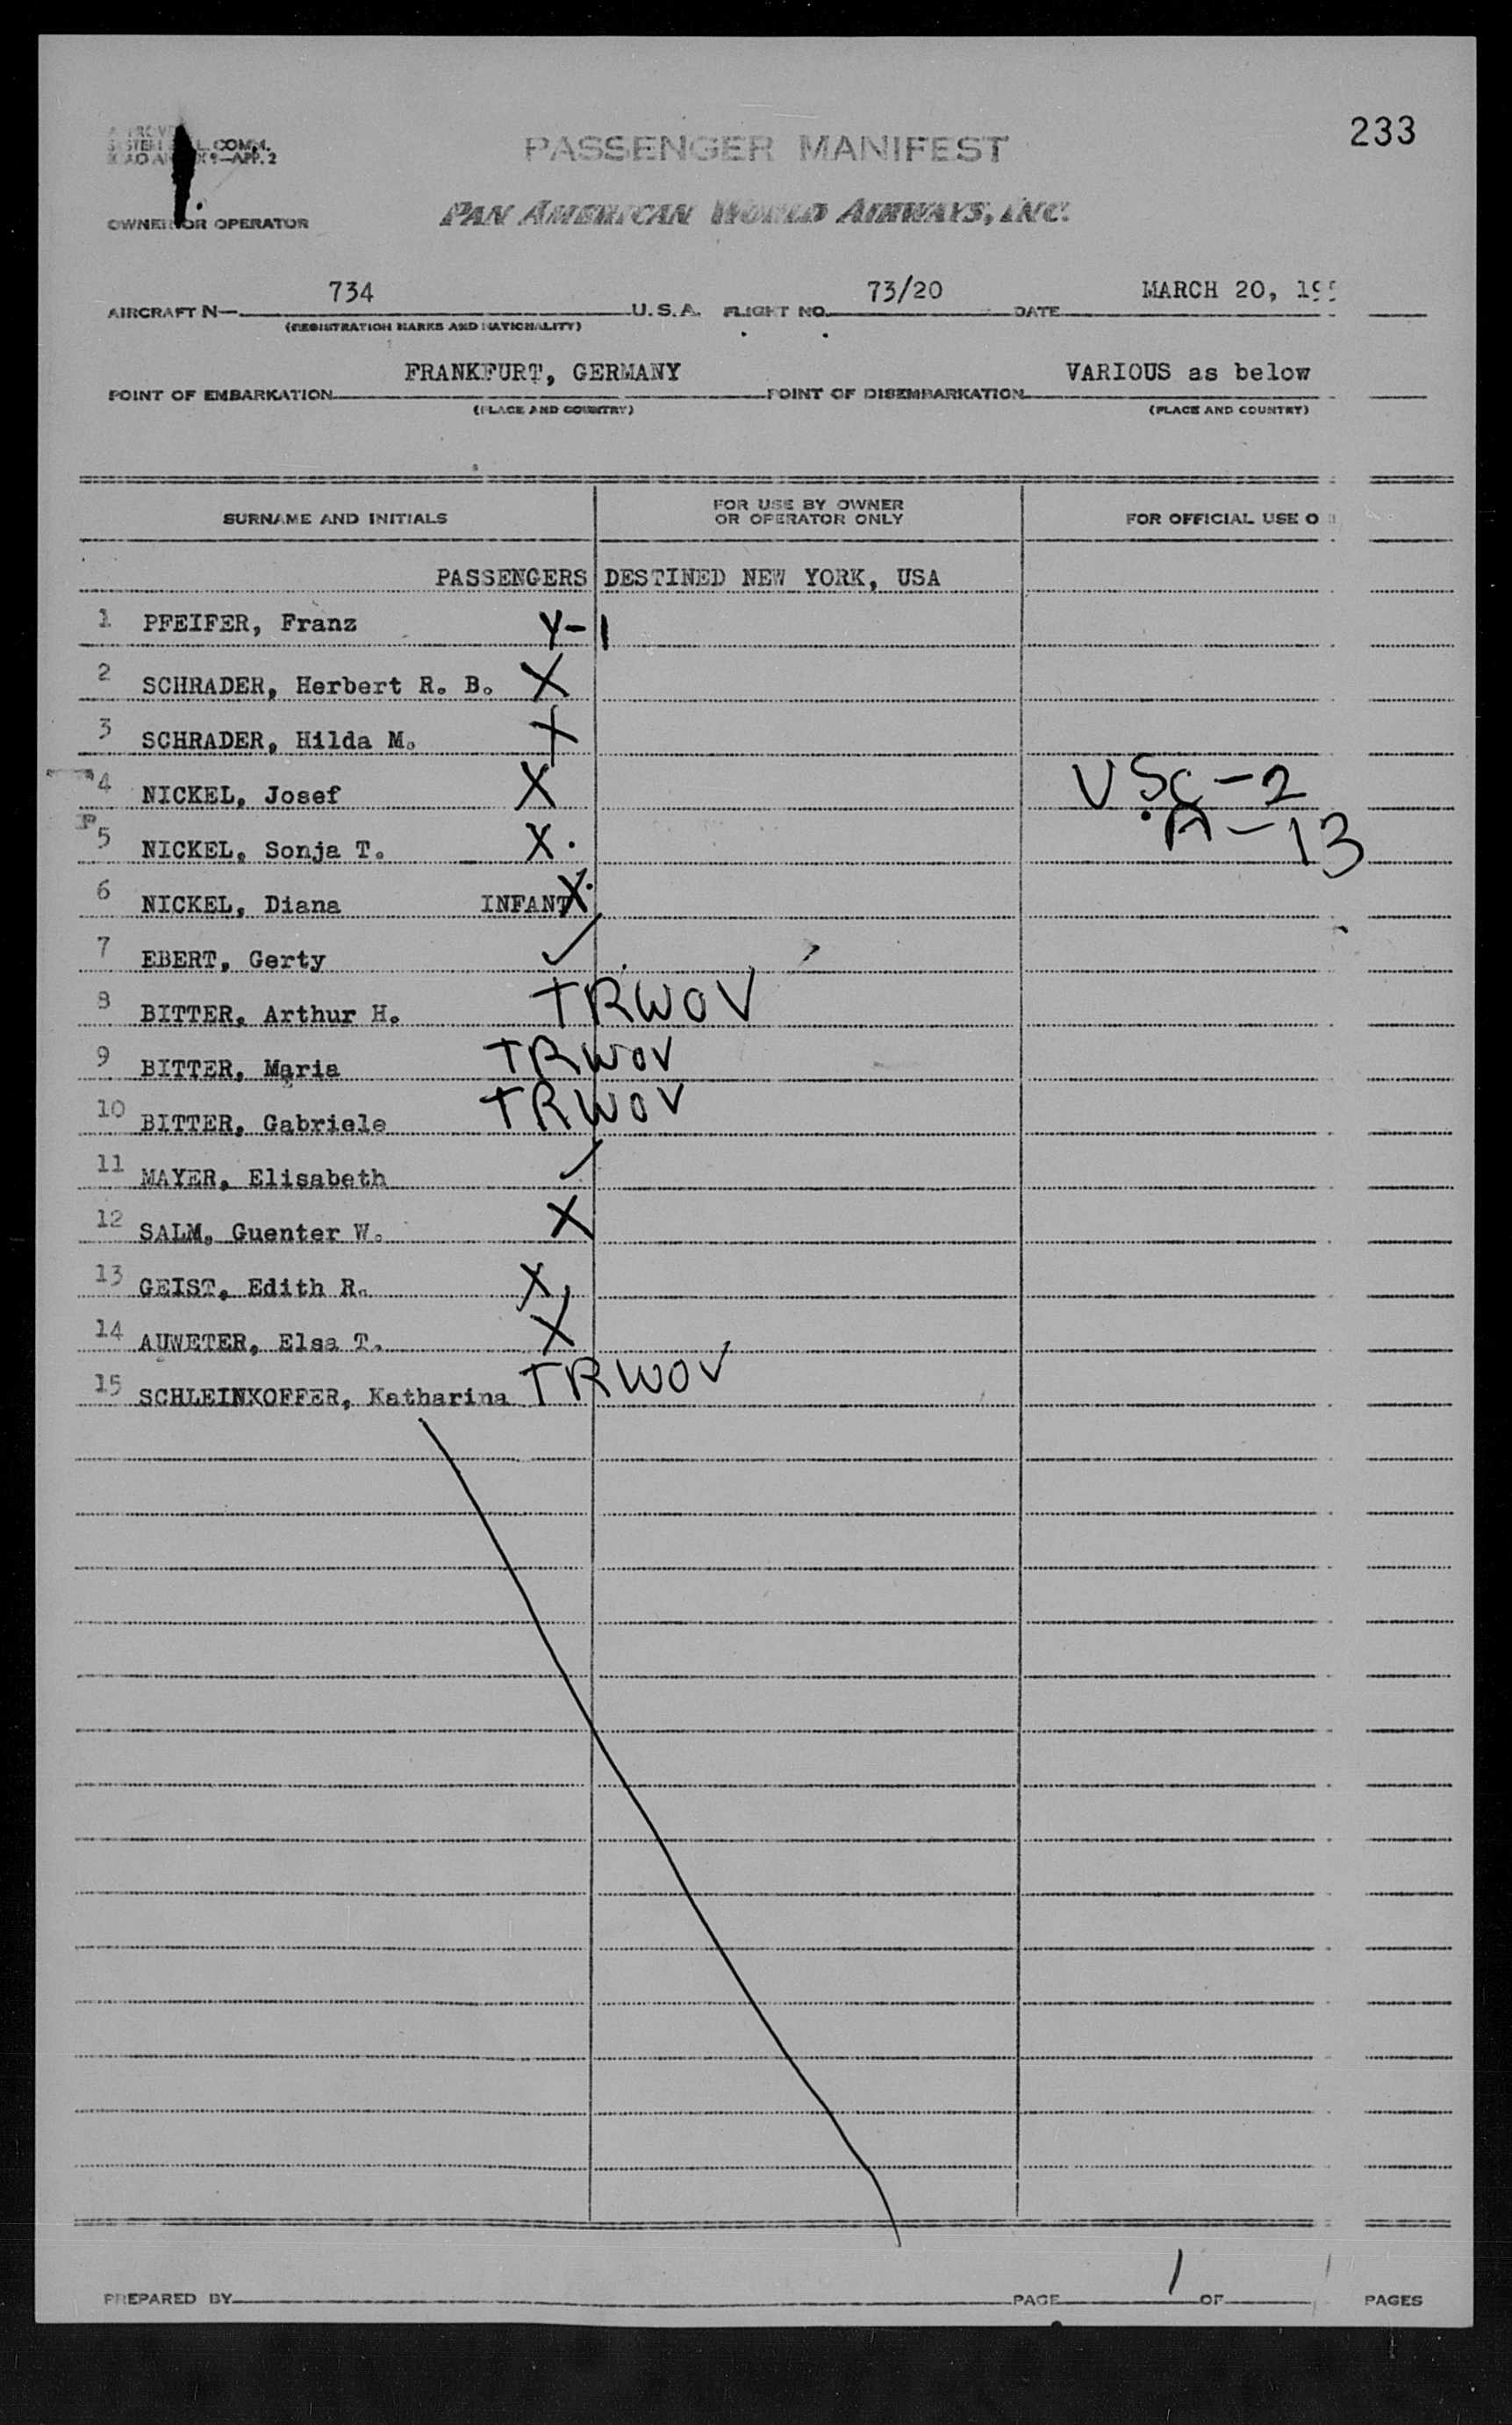 233
L. COMM.
APP. 2
PASSENGER MANIFEST
OWNER OR OPERATOR
PAN AMERICAN WORLD AIRWAYS, INC.
AIRCRAFT N— 734 U.S.A. FLIGHT NO. 73/20 DATE MARCH 20, 195
(REGISTRATION MARKS AND NATIONALITY)
POINT OF EMBARKATION FRANKFURT, GERMANY POINT OF DISEMBARKATION VARIOUS as below
(PLACE AND COUNTRY) (PLACE AND COUNTRY)
SURNAME AND INITIALS FOR USE BY OWNER OR OPERATOR ONLY FOR OFFICIAL USE O
PASSENGERS DESTINED NEW YORK, USA
1 PFEIFER, Franz Y-1
2 SCHRADER, Herbert R. B. X
3 SCHRADER, Hilda M. X
4 NICKEL, Josef X USC-2
5 NICKEL, Sonja T. X A-13
6 NICKEL, Diana INFANT X
7 EBERT, Gerty ✓
8 BITTER, Arthur H. TRWOV
9 BITTER, Maria TRWOV
10 BITTER, Gabriele TRWOV
11 MAYER, Elisabeth ✓
12 SALM, Guenter W. X
13 GEIST, Edith R. X
14 AUWETER, Elsa T. X
15 SCHLEINKOFFER, Katharina TRWOV
PREPARED BY PAGE 1 OF 1 PAGES